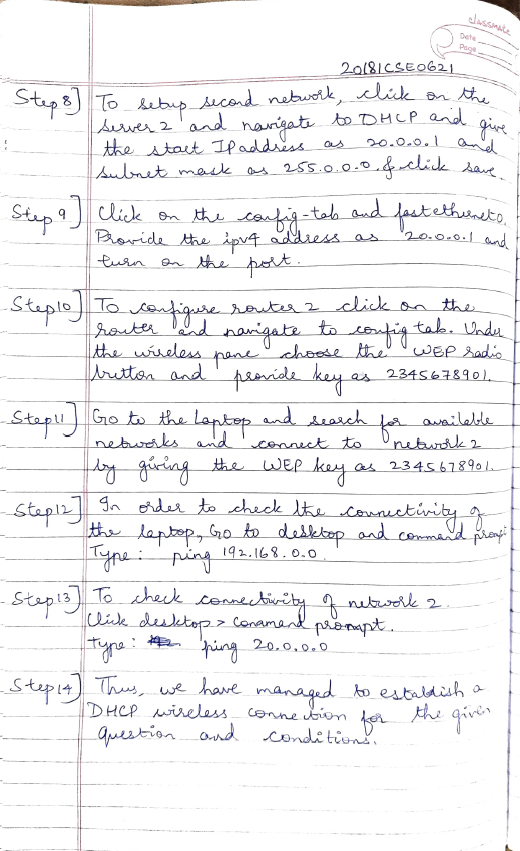 classmate
Date
Page
20181CSE0621
Step 8] To setup second network, click on the
server 2 and navigate to DHCP and give
the start IP address as 20.0.0.1 and
subnet mask as 255.0.0.0. & click save.
Step 9] Click on the config-tab and fastethernet0.
Provide the ipv4 address as 20.0.0.1 and
turn on the port.
Step10] To configure router 2 click on the
router and navigate to config tab. Under
the wireless pane choose the WEP radio
button and provide key as 2345678901.
Step11] Go to the Laptop and search for available
networks and connect to network 2
by giving the WEP key as 2345678901.
Step12] In order to check the connectivity of
the laptop, Go to desktop and command prompt
Type: ping 192.168.0.0
Step13] To check connectivity of network 2.
Click desktop > command prompt.
Type: ping 20.0.0.0
Step14] Thus, we have managed to establish a
DHCP wireless connection for the given
question and conditions.